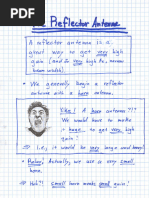 The Reflector Antenna
A reflector antenna is a
great way to get very high
gain (and so very high Do, narrow
beam width).
* We generally design a reflector
antenna with a horn antenna.
Like! A horn antenna?!?
We would have to make
it huge to get very
high gain!
I.E., it would be very large and heavy!
* Haha! Actually, we use a very small
horn.
Huh?! Small horn means small gain!